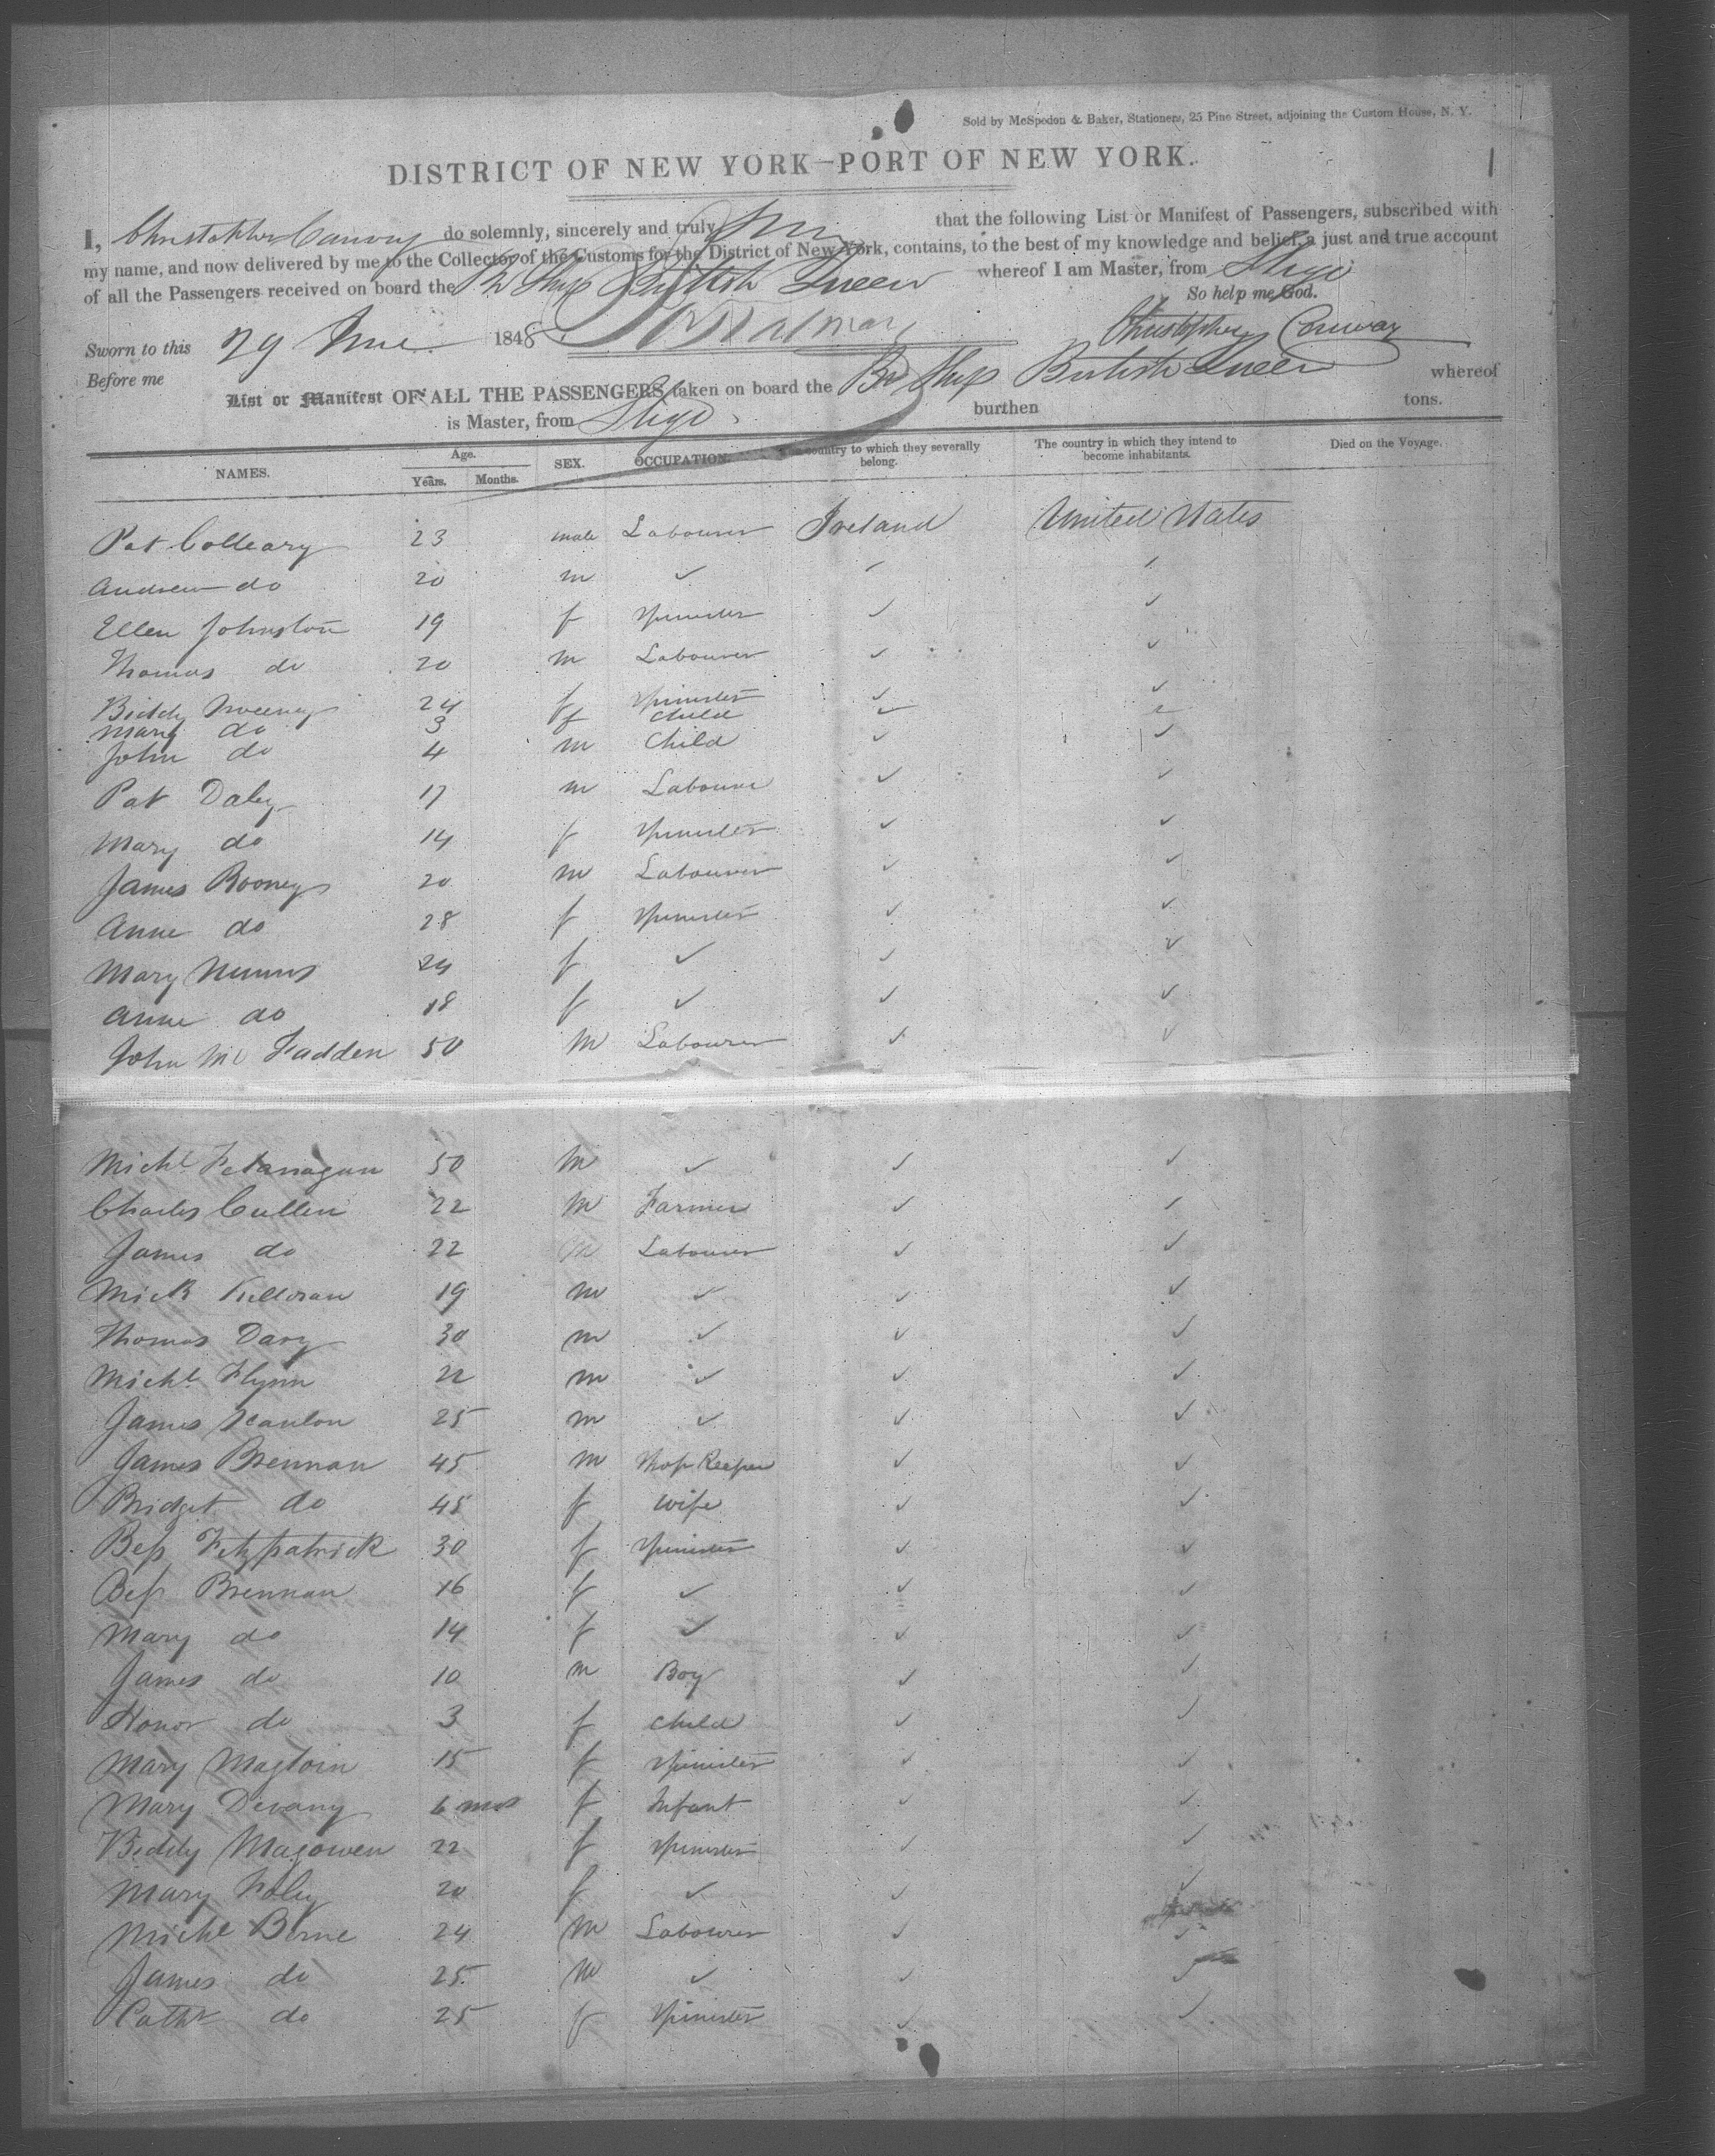 Sold by McSpedon & Baker, Stationers, 25 Pine Street, adjoining the Custom House, N. Y.
1
DISTRICT OF NEW YORK—PORT OF NEW YORK.
I, Christopher Conway do solemnly, sincerely and truly that the following List or Manifest of Passengers, subscribed with
my name, and now delivered by me to the Collector of the Customs for the District of New York, contains, to the best of my knowledge and belief, a just and true account
of all the Passengers received on board the Br Ship British Queen whereof I am Master, from Sligo
So help me God.
Sworn to this 29 June 1848 Christopher Conway
Before me
List or Manifest OF ALL THE PASSENGERS taken on board the Br Ship British Queen whereof
is Master, from Sligo burthen tons.
NAMES. Age. Years. Months. SEX. OCCUPATION. country to which they severally belong. The country in which they intend to become inhabitants. Died on the Voyage.
Pat Colleary 23 male Labourer Ireland United States
Andrew do 20 m ✓ ✓ ✓
Ellen Johnston 19 f Spinster ✓ ✓
Thomas do 20 m Labourer ✓ ✓
Biddy Sweeney 24 f Spinster ✓ ✓
Mary do 3 f Child ✓ ✓
John do 4 m Child ✓ ✓
Pat Daly 17 m Labourer ✓ ✓
Mary do 14 f Spinster ✓ ✓
James Rooney 20 m Labourer ✓ ✓
Anne do 28 f Spinster ✓ ✓
Mary 24 f ✓ ✓ ✓
Anne do 18 f ✓ ✓ ✓
John Mc Fadden 50 M Labourer ✓ ✓
Michl Felanagan 50 M ✓ ✓ ✓
Charles Cullen 22 M Farmer ✓ ✓
James do 22 M Labourer ✓ ✓
Mick Killoran 19 m ✓ ✓ ✓
Thomas Davy 30 m ✓ ✓ ✓
Michl Flynn 22 m ✓ ✓ ✓
James Scanlon 25 m ✓ ✓ ✓
James Brennan 45 m Shop Keeper ✓ ✓
Bridget do 45 f wife ✓ ✓
Bess Fitzpatrick 30 f Spinster ✓ ✓
Bess Brennan 16 f ✓ ✓ ✓
Mary do 14 f ✓ ✓ ✓
James do 10 m Boy ✓ ✓
Honor do 3 f Child ✓ ✓
Mary Magloin 15 f Spinster ✓ ✓
Mary Devany 6 mos f Infant ✓ ✓
Biddy Magowen 22 f Spinster ✓ ✓
Mary Foley 20 f ✓ ✓ ✓
Michl Birne 24 M Labourer ✓ ✓
James do 25 M ✓ ✓ ✓
Cathr do 25 f Spinster ✓ ✓